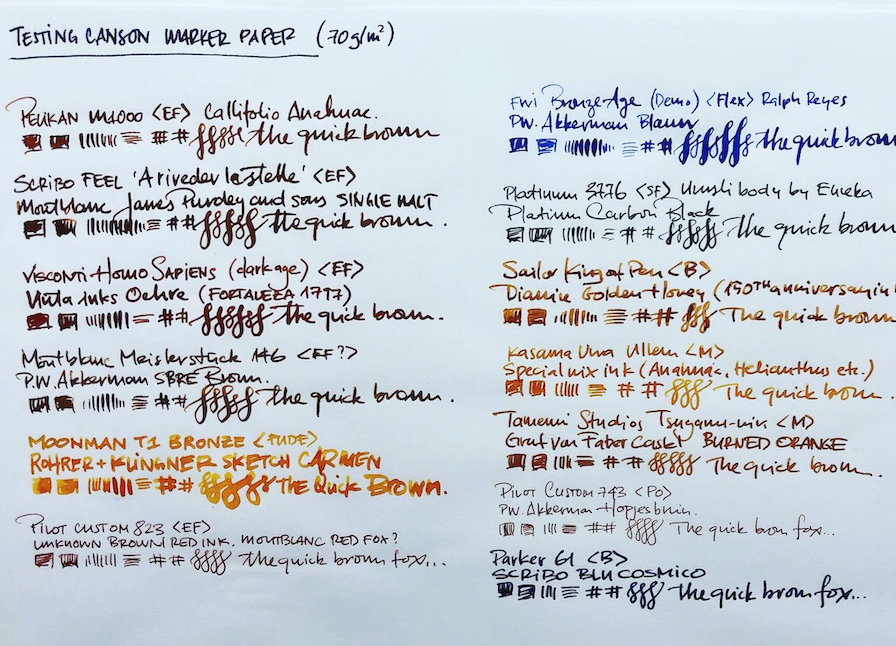 TESTING CANSON MARKER PAPER (70g/m²)
PELIKAN M1000 <EF> Callifolio Anahuac.
the quick brown
SCRIBO FEEL 'A riveder le stelle' <EF>
Montblanc James Purdey and sons SINGLE MALT
the quick brown.
VISCONTI Homo SAPIENS (dark age) <EF>
Vinta inks Ochre (FORTALEZA 1797)
the quick brown.
Montblanc Meisterstück 146 <EF?>
P.W. Akkerman SBRE Brown.
the quick brown.
MOONMAN T1 BRONZE <FUDE>
ROHRER + KLINGNER SKETCH CARMEN
THE QUICK BROWN.
PILOT CUSTOM 823 <EF>
UNKNOWN BROWN/RED INK. MONTBLANC RED FOX?
the quick brown fox...
FWI Bronze Age (Demo) <Flex> Ralph Reyes
P.W. Akkerman Blauw
the quick brown
Platinum 3776 <SF> Urushi body by Eureka
Platinum Carbon Black
the quick brown
Sailor King of Pen <B>
Diamine Golden Honey (150TH anniversary in
The quick brown
Kasama Una Ultem <M>
Special mix ink (Anahuac, Helianthus etc.)
The quick brown.
Tamenui Studios Tsugaru-nuri <M>
Graf von Faber Castel BURNED ORANGE
The quick brown.
PILOT CUSTOM 743 <PO>
P.W. Akkerman Hopjesbruin.
The quick brown fox...
Parker 61 <B>
SCRIBO BLU COSMICO
the quick brown fox...